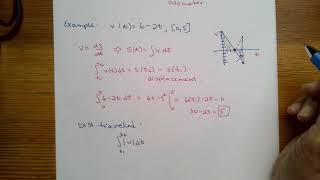 odometer.
Example: v(t) = 6-2t, [0,5]
v = ds/dt ⇒ s(t) = ∫ v dt
∫ v(t) dt = s(t₂) - s(t₁)
displacement
∫₀⁵ 6-2t dt = 6t - t² |₀⁵ = 6(5)-25-0
30-25 = 5
dist traveled:
∫ |v| dt